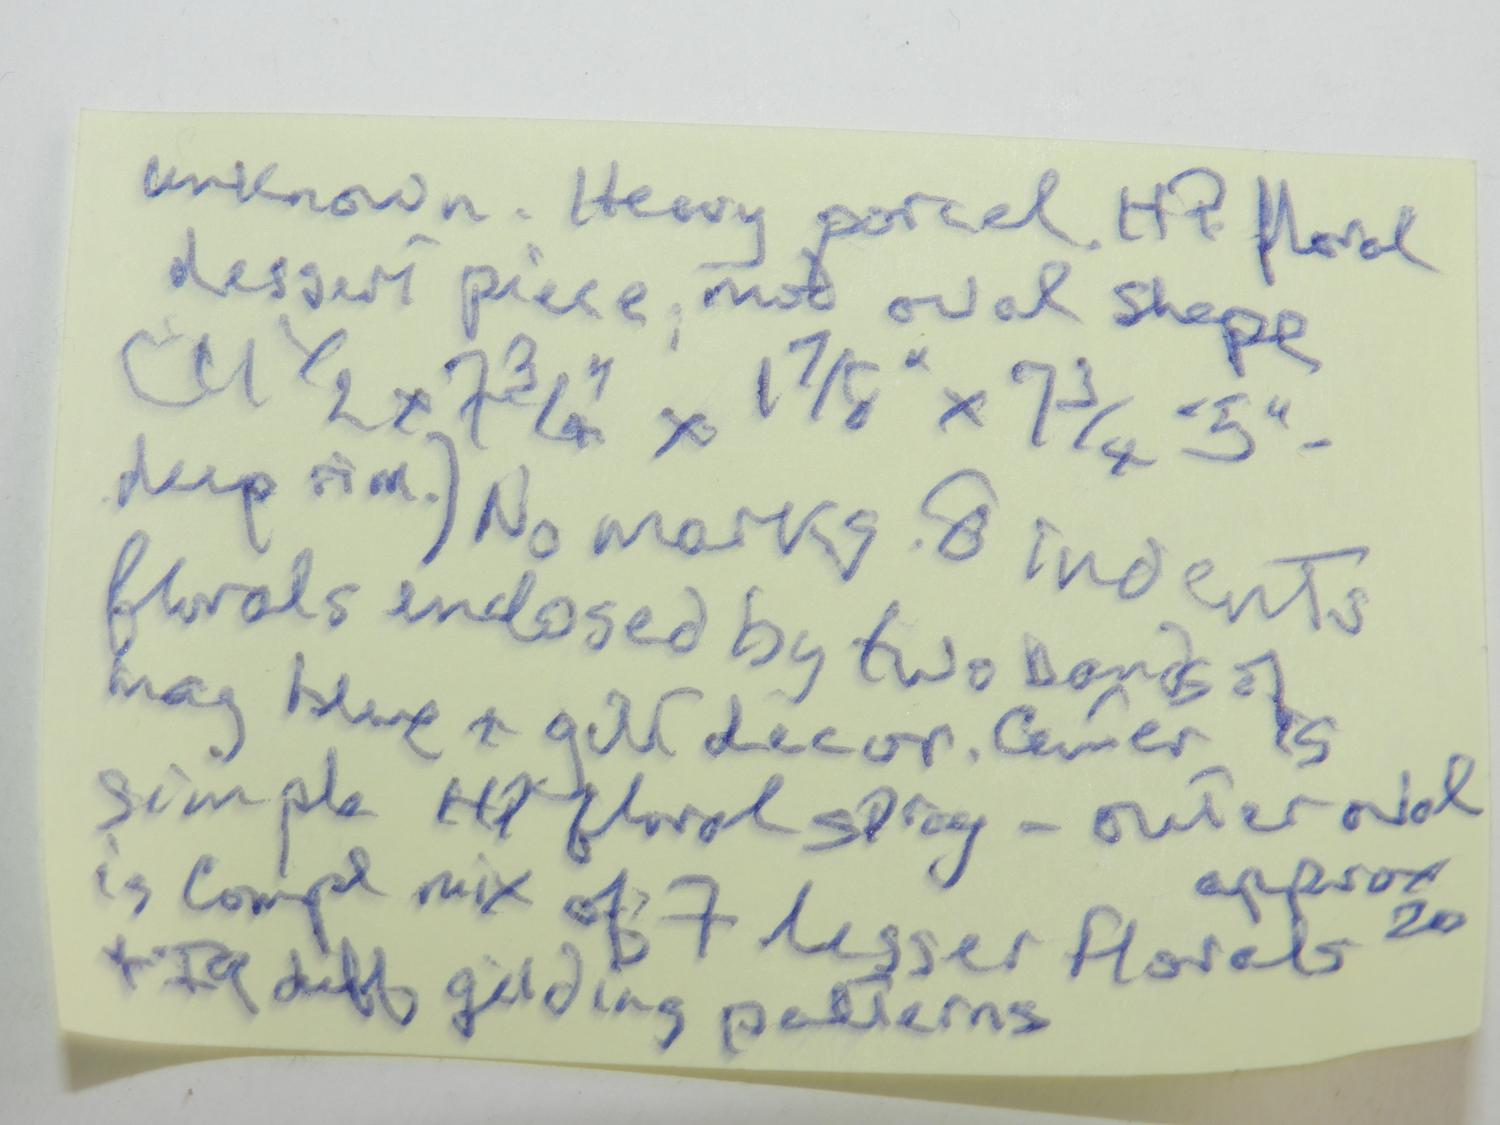 unknown. Heavy porcel. HP floral
dessert piece, mod oval shape
(11 1/2 x 7 3/4" x 1 7/8" x 7 3/4 - 5" -
deep rim.) No marks. 8 indents
florals enclosed by two bands of
mag blue + gilt decor. Center is
simple HP floral spray - outer oval
is Compl mix of 7 lesser florals approx 20
+ diff gilding patterns